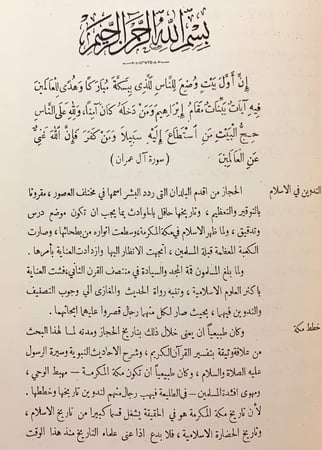 بسم الله الرحمن الرحيم
إن أول بيت وضع للناس للذي ببكة مباركا وهدى للعالمين
فيه آيات بينات مقام إبراهيم ومن دخله كان آمنا، ولله على الناس
حج البيت من استطاع إليه سبيلا ومن كفر فإن الله غني
عن العالمين (سورة آل عمران)
التدوين في الاسلام
الحجاز من أقدم البلدان التي ردد البشر اسمها في مختلف العصور ، مقرونا
بالتوقير والتعظيم ، وتاريخها حافل بالحوادث بما يجب ان تكون موضع درس
وتدقيق ، ولما ظهر الاسلام في مكة المكرمة، وسطعت انواره من بطحائها ، وصارت
الكعبة المعظمة قبلة المسلمين ، اتجهت الانظار اليها وازدادت العناية بأمرها .
ولما بلغ المسلمون قمة المجد والسيادة في منتصف القرن الثاني، فشت العناية
باكثر العلوم الاسلامية ، وتنبه رواة الحديث والمغازي الى وجوب التصنيف
والتدوين فيهما ، بحيث صار لكل منهما رجال قصروا عليها ابحاثهما .
خطط مكة
وكان طبيعياً ان يعنى خلال ذلك بتاريخ الحجاز ومدنه لما لهذا البحث
من علاقة وثيقة بتفسير القرآن الكريم ، وشرح الاحاديث النبوية وسيرة الرسول
عليه الصلاة والسلام ، وكان طبيعياً أن تكون مكة المكرمة – مهبط الوحي ،
ومهوى افئدة المسلمين – في الطليعة فيهب رجال منهم لتدوين تاريخها وخططها .
لأن تاريخ مكة المكرمة هو في الحقيقة يشغل قسما كبيرا من تاريخ الاسلام ،
وتاريخ الحضارة الاسلامية ، فلا بدع اذا عنى علماء التاريخ منذ هذا الوقت